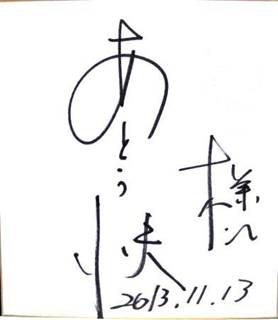 様
あとう快
2013.11.13